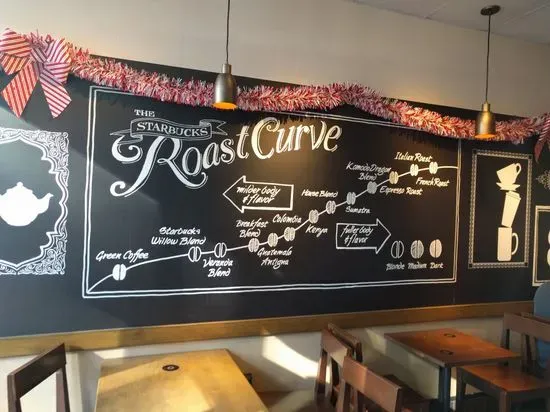 THE
STARBUCKS
Roast Curve
milder body
& flavor
fuller body
& flavor
Green Coffee
Starbucks
Willow Blend
Veranda
Blend
Breakfast
Blend
Guatemala
Antigua
Colombia
Kenya
House Blend
Sumatra
Komodo Dragon
Blend
Espresso Roast
Italian Roast
French Roast
Blonde
Medium
Dark